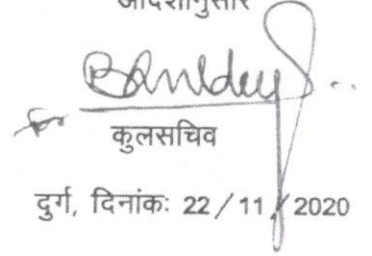 आदेशानुसार
कुलसचिव
दुर्ग, दिनांकः 22/11/2020